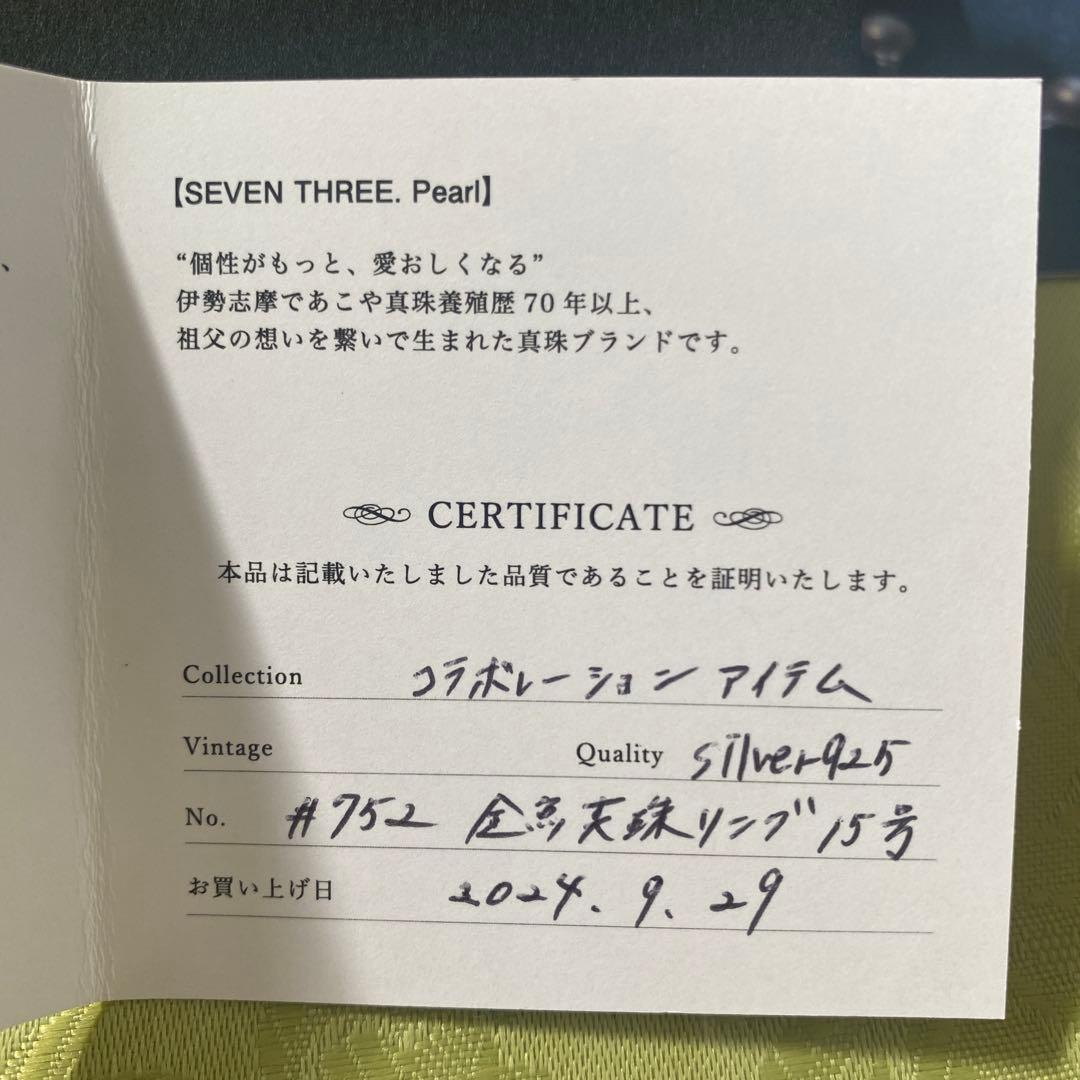 【SEVEN THREE. Pearl】
“個性がもっと、愛おしくなる”
伊勢志摩であこや真珠養殖歴 70 年以上、
祖父の想いを繋いで生まれた真珠ブランドです。
CERTIFICATE
本品は記載いたしました品質であることを証明いたします。
Collection コラボレーション アイテム
Vintage Quality silver925
No. #752 金魚真珠リング 15号
お買い上げ日 2024. 9. 29
、